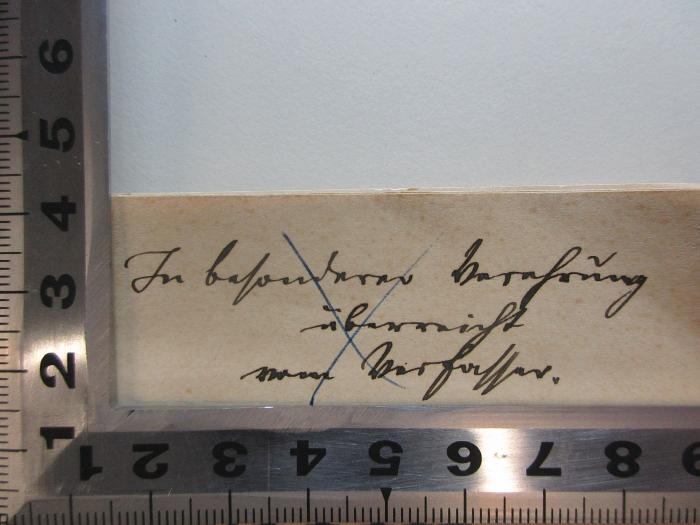 In besonderer Verehrung
überreicht
vom Verfasser.
6
5
4
3
2
1
1 2 3 4 5 6 7 8 9